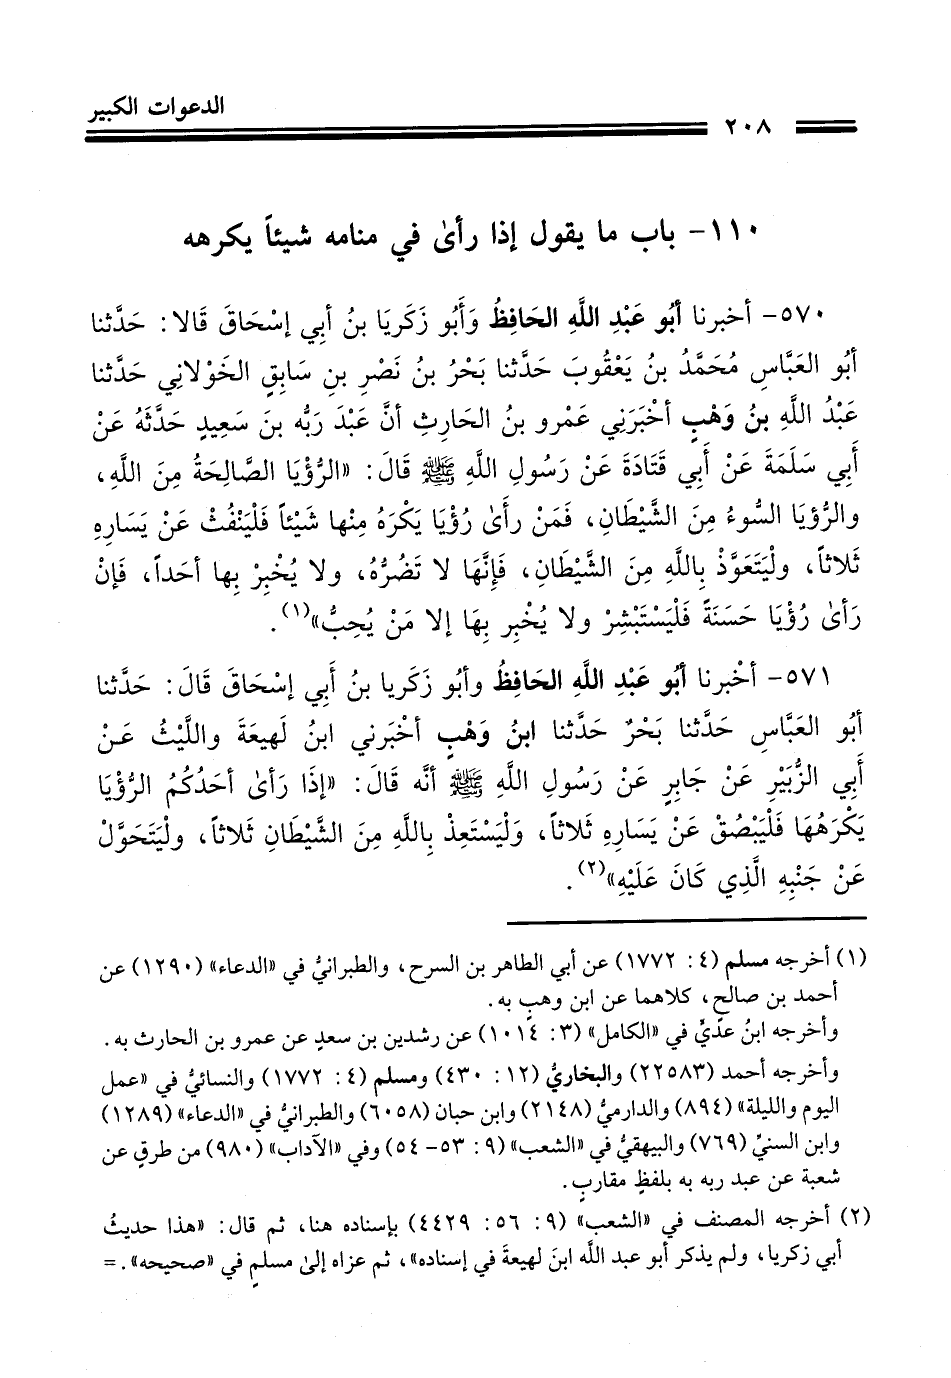 الدعوات الكبير
٢٠٨
١١٠- باب ما يقول إذا رأىٰ في منامه شيئاً يكرهه
٥٧٠- أخبرنا أَبُو عَبْدِ اللَّهِ الحَافِظُ وَأَبُو زَكَرِيا بنُ أبي إسْحَاقَ قَالا: حَدَّثنا
أبُو العَبَّاسِ مُحَمَّدُ بنُ يَعْقُوبَ حَدَّثنا بَحْرُ بنُ نَصْرِ بنِ سَابِقٍ الخَوْلاني حَدَّثنا
عَبْدُ اللَّهِ بنُ وَهْبٍ أخْبَرَنِي عَمْرو بنُ الحَارِثِ أنَّ عَبْدَ رَبُّه بنَ سَعِيدٍ حَدَّثَهُ عَنْ
أبِي سَلَمَةَ عَنْ أَبِي قَتَادَةَ عَنْ رَسُولِ اللَّهِ ﷺ قَالَ: «الرُّؤْيَا الصَّالِحَةُ مِنَ اللَّهِ،
والرُّؤيَا السُّوءُ مِنَ الشَّيْطَانِ، فَمَنْ رأىٰ رُؤْيَا يَكْرَهُ مِنْها شَيْئاً فَلْيَنْفُثْ عَنْ يَسَارِهِ
ثَلاثاً، ولْيَتَعَوَّذْ بِاللَّهِ مِنَ الشَّيْطَانِ، فَإنَّهَا لا تَضُرُّهُ، ولا يُخْبِرْ بِها أحَداً، فَإنْ
رَأىٰ رُؤْيَا حَسَنَةً فَلْيَسْتَبْشِرْ ولا يُخْبِر بِهَا إلا مَنْ يُحِبُّ»(١).
٥٧١- أخْبرنا أَبُو عَبْدِ اللَّهِ الحَافِظُ وأبُو زَكريا بنُ أَبِي إسْحَاقَ قَالَ: حَدَّثنا
أبُو العَبَّاسِ حَدَّثنا بَحْرٌ حَدَّثنا ابنُ وَهْبٍ أخْبَرني ابنُ لَهِيعَةَ واللَّيْثُ عَنْ
أبِي الزُّبَيْرِ عَنْ جَابِرٍ عَنْ رَسُولِ اللَّهِ ﷺ أنَّه قَالَ: «إذَا رَأىٰ أحَدُكُمُ الرُّؤْيَا
يَكْرَهُهَا فَلْيَبْصُقْ عَنْ يَسَارِهِ ثَلاثاً، وَلْيَسْتَعِذْ بِاللَّهِ مِنَ الشَّيْطَانِ ثَلاثاً، ولْيَتَحَوَّلْ
عَنْ جَنْبِهِ الَّذِي كَانَ عَلَيْهِ»(٢).
(١) أخرجه مسلم (٤: ١٧٧٢) عن أبي الطاهر بن السرح، والطبرانيُّ في «الدعاء» (١٢٩٠) عن
أحمد بن صالحٍ، كلاهما عن ابن وهبٍ به.
وأخرجه ابنُ عديٍّ في «الكامل» (٣: ١٠١٤) عن رشدين بن سعدٍ عن عمرو بن الحارث به.
وأخرجه أحمد (٢٢٥٨٣) والبخاريُّ (١٢: ٤٣٠) ومسلم (٤: ١٧٧٢) والنسائيُّ في «عمل
اليوم والليلة» (٨٩٤) والدارميُّ (٢١٤٨) وابن حبان (٦٠٥٨) والطبرانيُّ في «الدعاء» (١٢٨٩)
وابن السنيِّ (٧٦٩) والبيهقيُّ في «الشعب» (٩: ٥٣- ٥٤) وفي «الآداب» (٩٨٠) من طرقٍ عن
شعبة عن عبد ربه به بلفظٍ مقاربٍ.
(٢) أخرجه المصنف في «الشعب» (٩: ٥٦: ٤٤٢٩) بإسناده هنا، ثم قال: «هذا حديثُ
أبي زكريا، ولم يذكر أبو عبد اللَّه ابنَ لهيعةَ في إسناده»، ثم عزاه إلىٰ مسلمٍ في «صحيحه». =